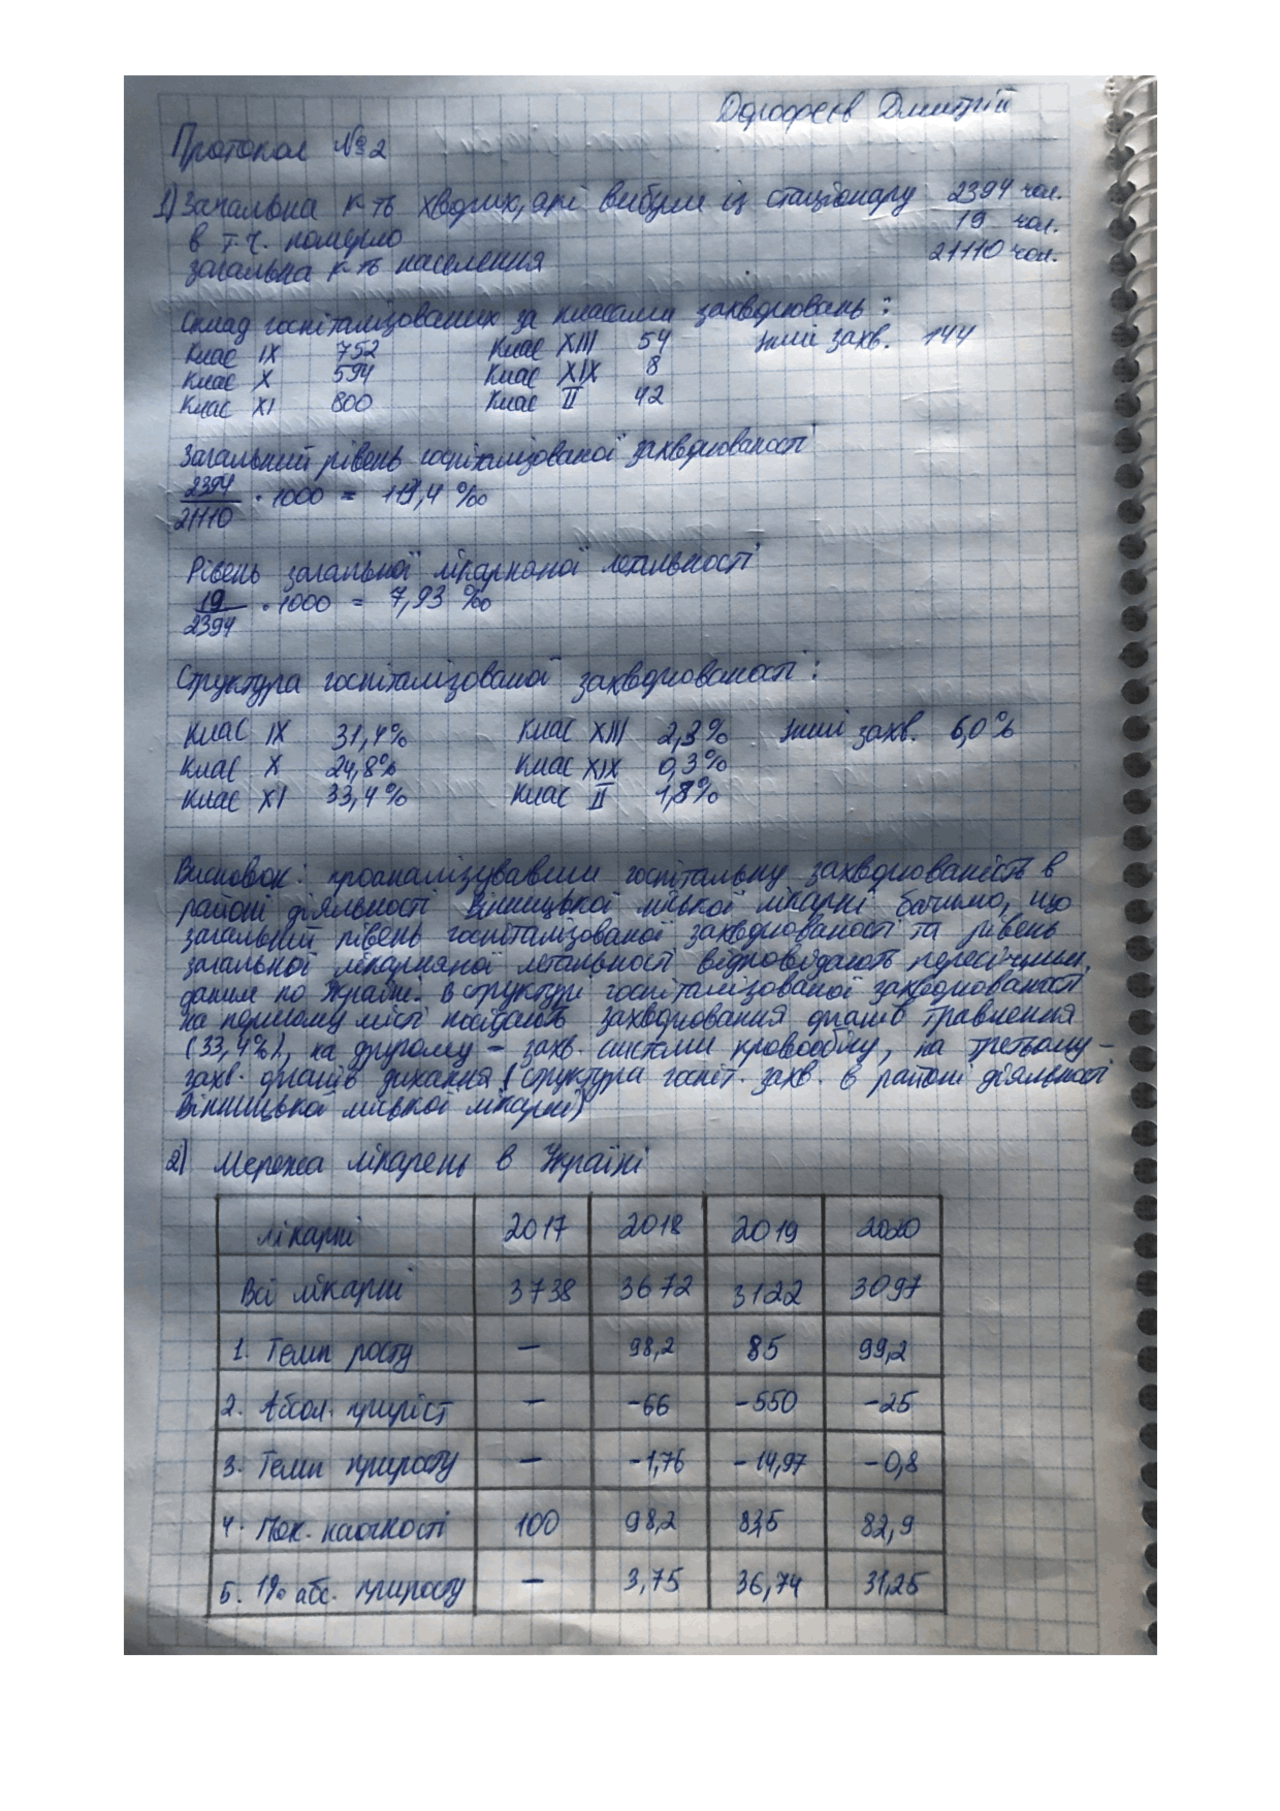 Дорофєєв Дмитрій
Протокол №2
1) Загальна к-ть хворих, які вибули із стаціонару 2394 чол.
в т.ч. померло 19 чол.
загальна к-ть населення 21110 чол.
Склад госпіталізованих за класами захворювань:
Клас IX 752 Клас XIII 54 Інші захв. 144
Клас X 594 Клас XIX 8
Клас XI 800 Клас II 42
Загальний рівень госпіталізованої захворюваності
2394
21110 · 1000 = 113,4 ‰
Рівень загальної лікарняної летальності
19
2394 · 1000 = 7,93 ‰
Структура госпіталізованої захворюваності:
Клас IX 31,4% Клас XIII 2,3% Інші захв. 6,0%
Клас X 24,8% Клас XIX 0,3%
Клас XI 33,4% Клас II 1,8%
Висновок: проаналізувавши госпітальну захворюваність в
районі діяльності Вінницької міської лікарні бачимо, що
загальний рівень госпіталізованої захворюваності та рівень
загальної лікарняної летальності відповідають пересічним
даним по Україні. В структурі госпіталізованої захворюваності
на першому місті посідають захворювання органів травлення
(33,4%), на другому – захв. системи кровообігу, на третьому –
захв. органів дихання (структура госпіт. захв. в районі діяльності
Вінницької міської лікарні)
2) Мережа лікарень в Україні
лікарні 2017 2018 2019 2020
Всі лікарні 3738 3672 3122 3097
1. Темп росту — 98,2 85 99,2
2. Абсол. приріст — -66 -550 -25
3. Темп приросту — -1,76 -14,97 -0,8
4. Пок. наочності 100 98,2 83,5 82,9
5. 1% абс. приросту — 3,75 36,74 31,25